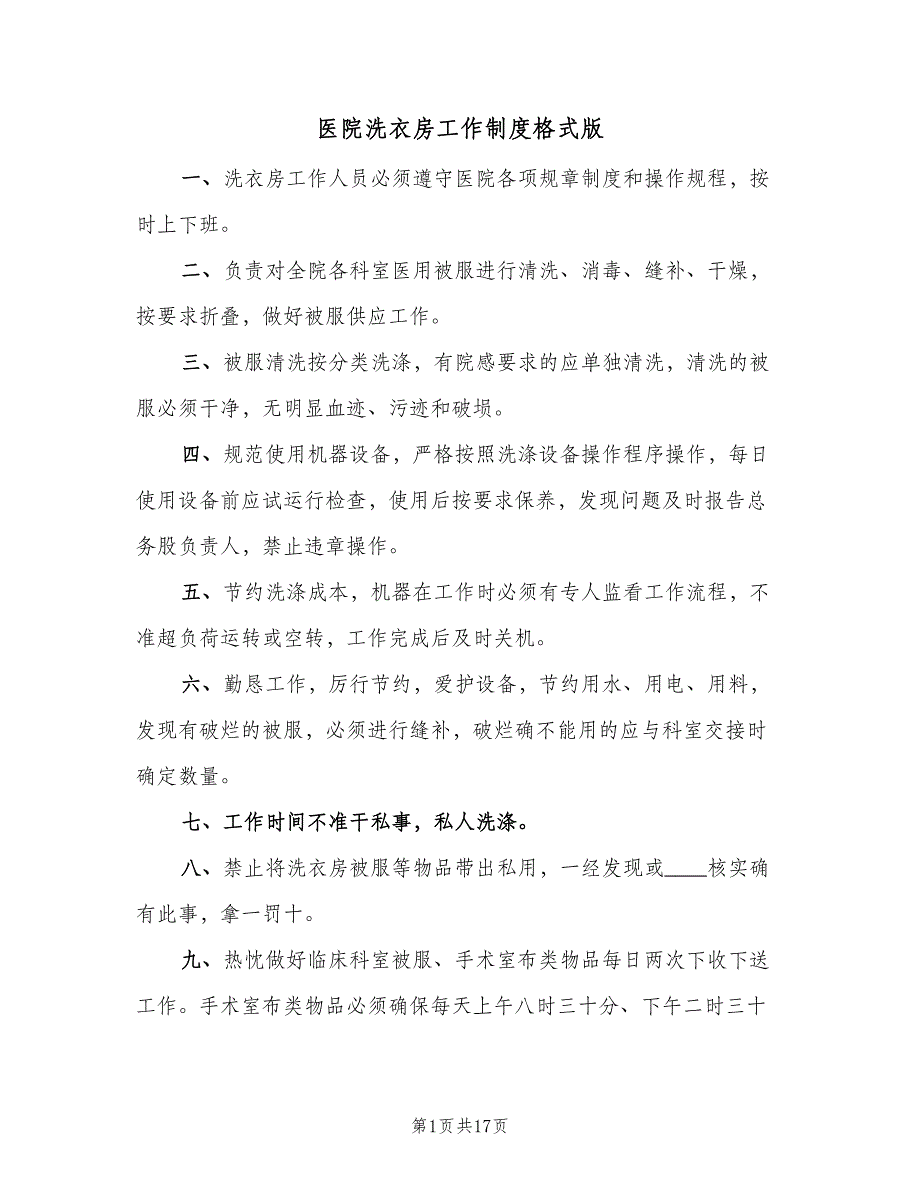 医院洗衣房工作制度格式版
一、洗衣房工作人员必须遵守医院各项规章制度和操作规程，按
时上下班。
二、负责对全院各科室医用被服进行清洗、消毒、缝补、干燥，
按要求折叠，做好被服供应工作。
三、被服清洗按分类洗涤，有院感要求的应单独清洗，清洗的被
服必须干净，无明显血迹、污迹和破损。
四、规范使用机器设备，严格按照洗涤设备操作程序操作，每日
使用设备前应试运行检查，使用后按要求保养，发现问题及时报告总
务股负责人，禁止违章操作。
五、节约洗涤成本，机器在工作时必须有专人监看工作流程，不
准超负荷运转或空转，工作完成后及时关机。
六、勤恳工作，厉行节约，爱护设备，节约用水、用电、用料，
发现有破烂的被服，必须进行缝补，破烂确不能用的应与科室交接时
确定数量。
七、工作时间不准干私事，私人洗涤。
八、禁止将洗衣房被服等物品带出私用，一经发现或____核实确
有此事，拿一罚十。
九、热忱做好临床科室被服、手术室布类物品每日两次下收下送
工作。手术室布类物品必须确保每天上午八时三十分、下午二时三十
第1页共17页